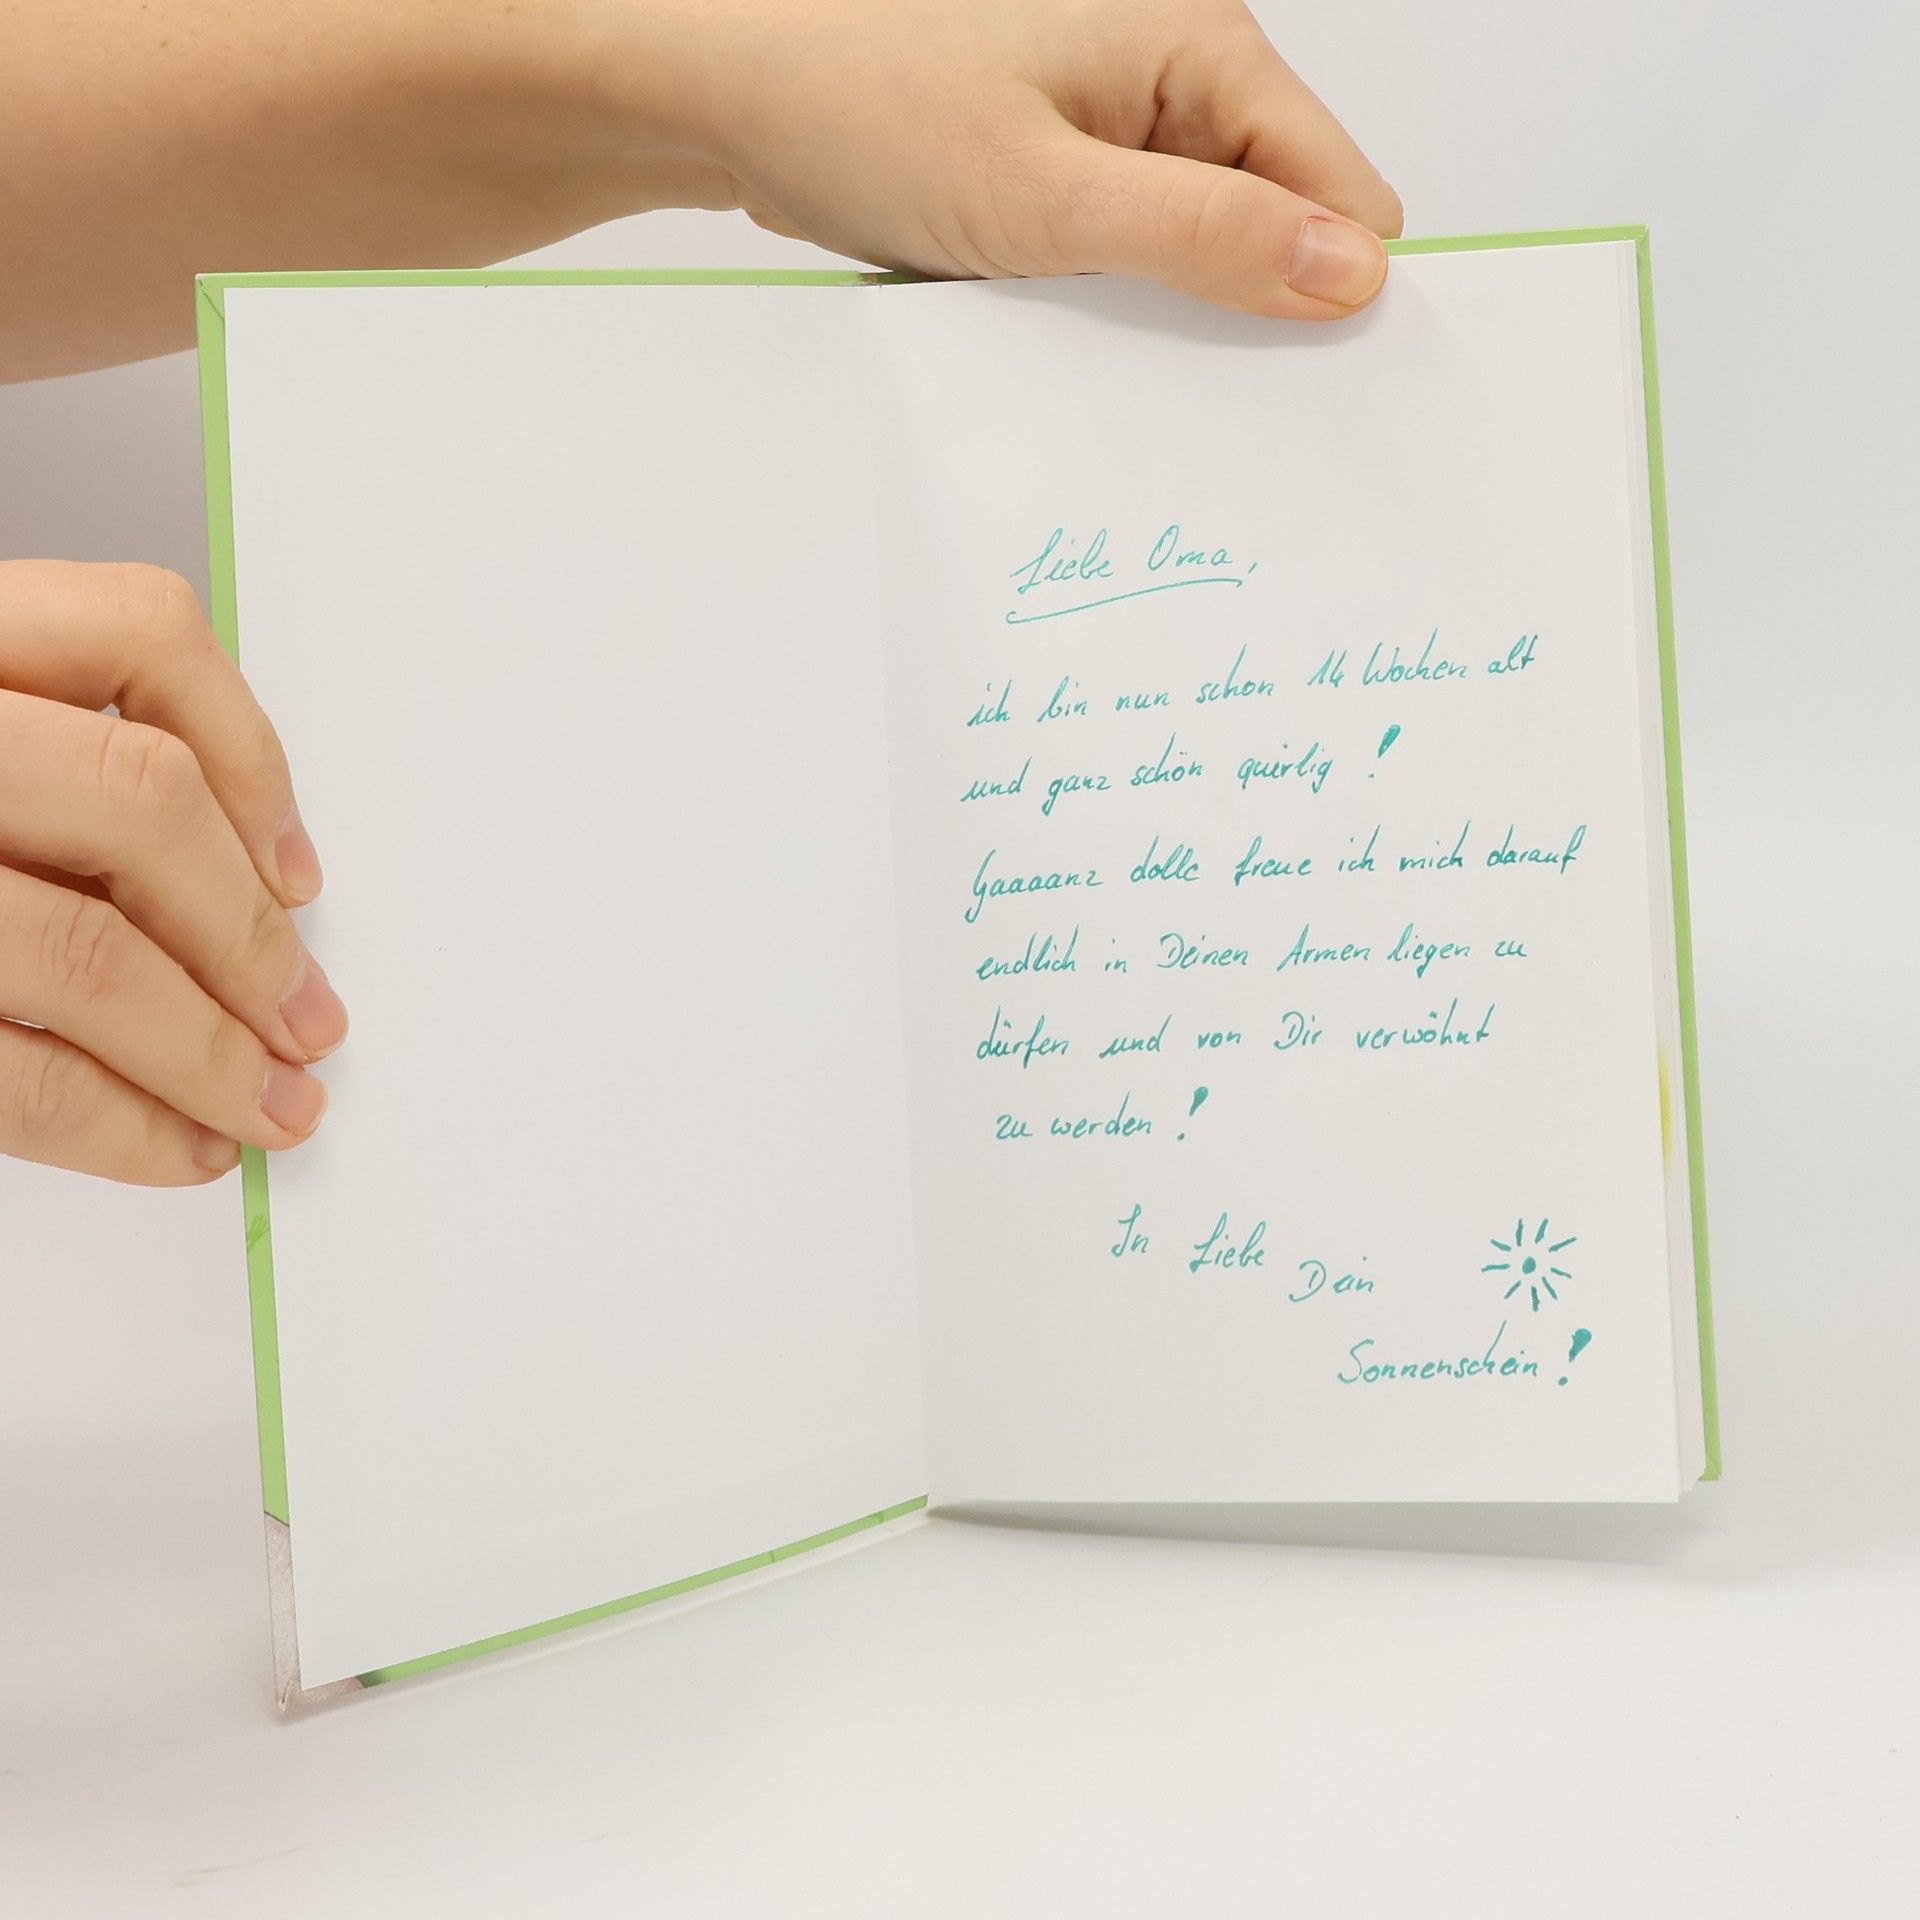 Liebe Oma,
ich bin nun schon 14 Wochen alt
und ganz schön quirlig!
Gaaaanz dolle freue ich mich darauf
endlich in Deinen Armen liegen zu
dürfen und von Dir verwöhnt
zu werden!
In Liebe Dein
Sonnenschein!